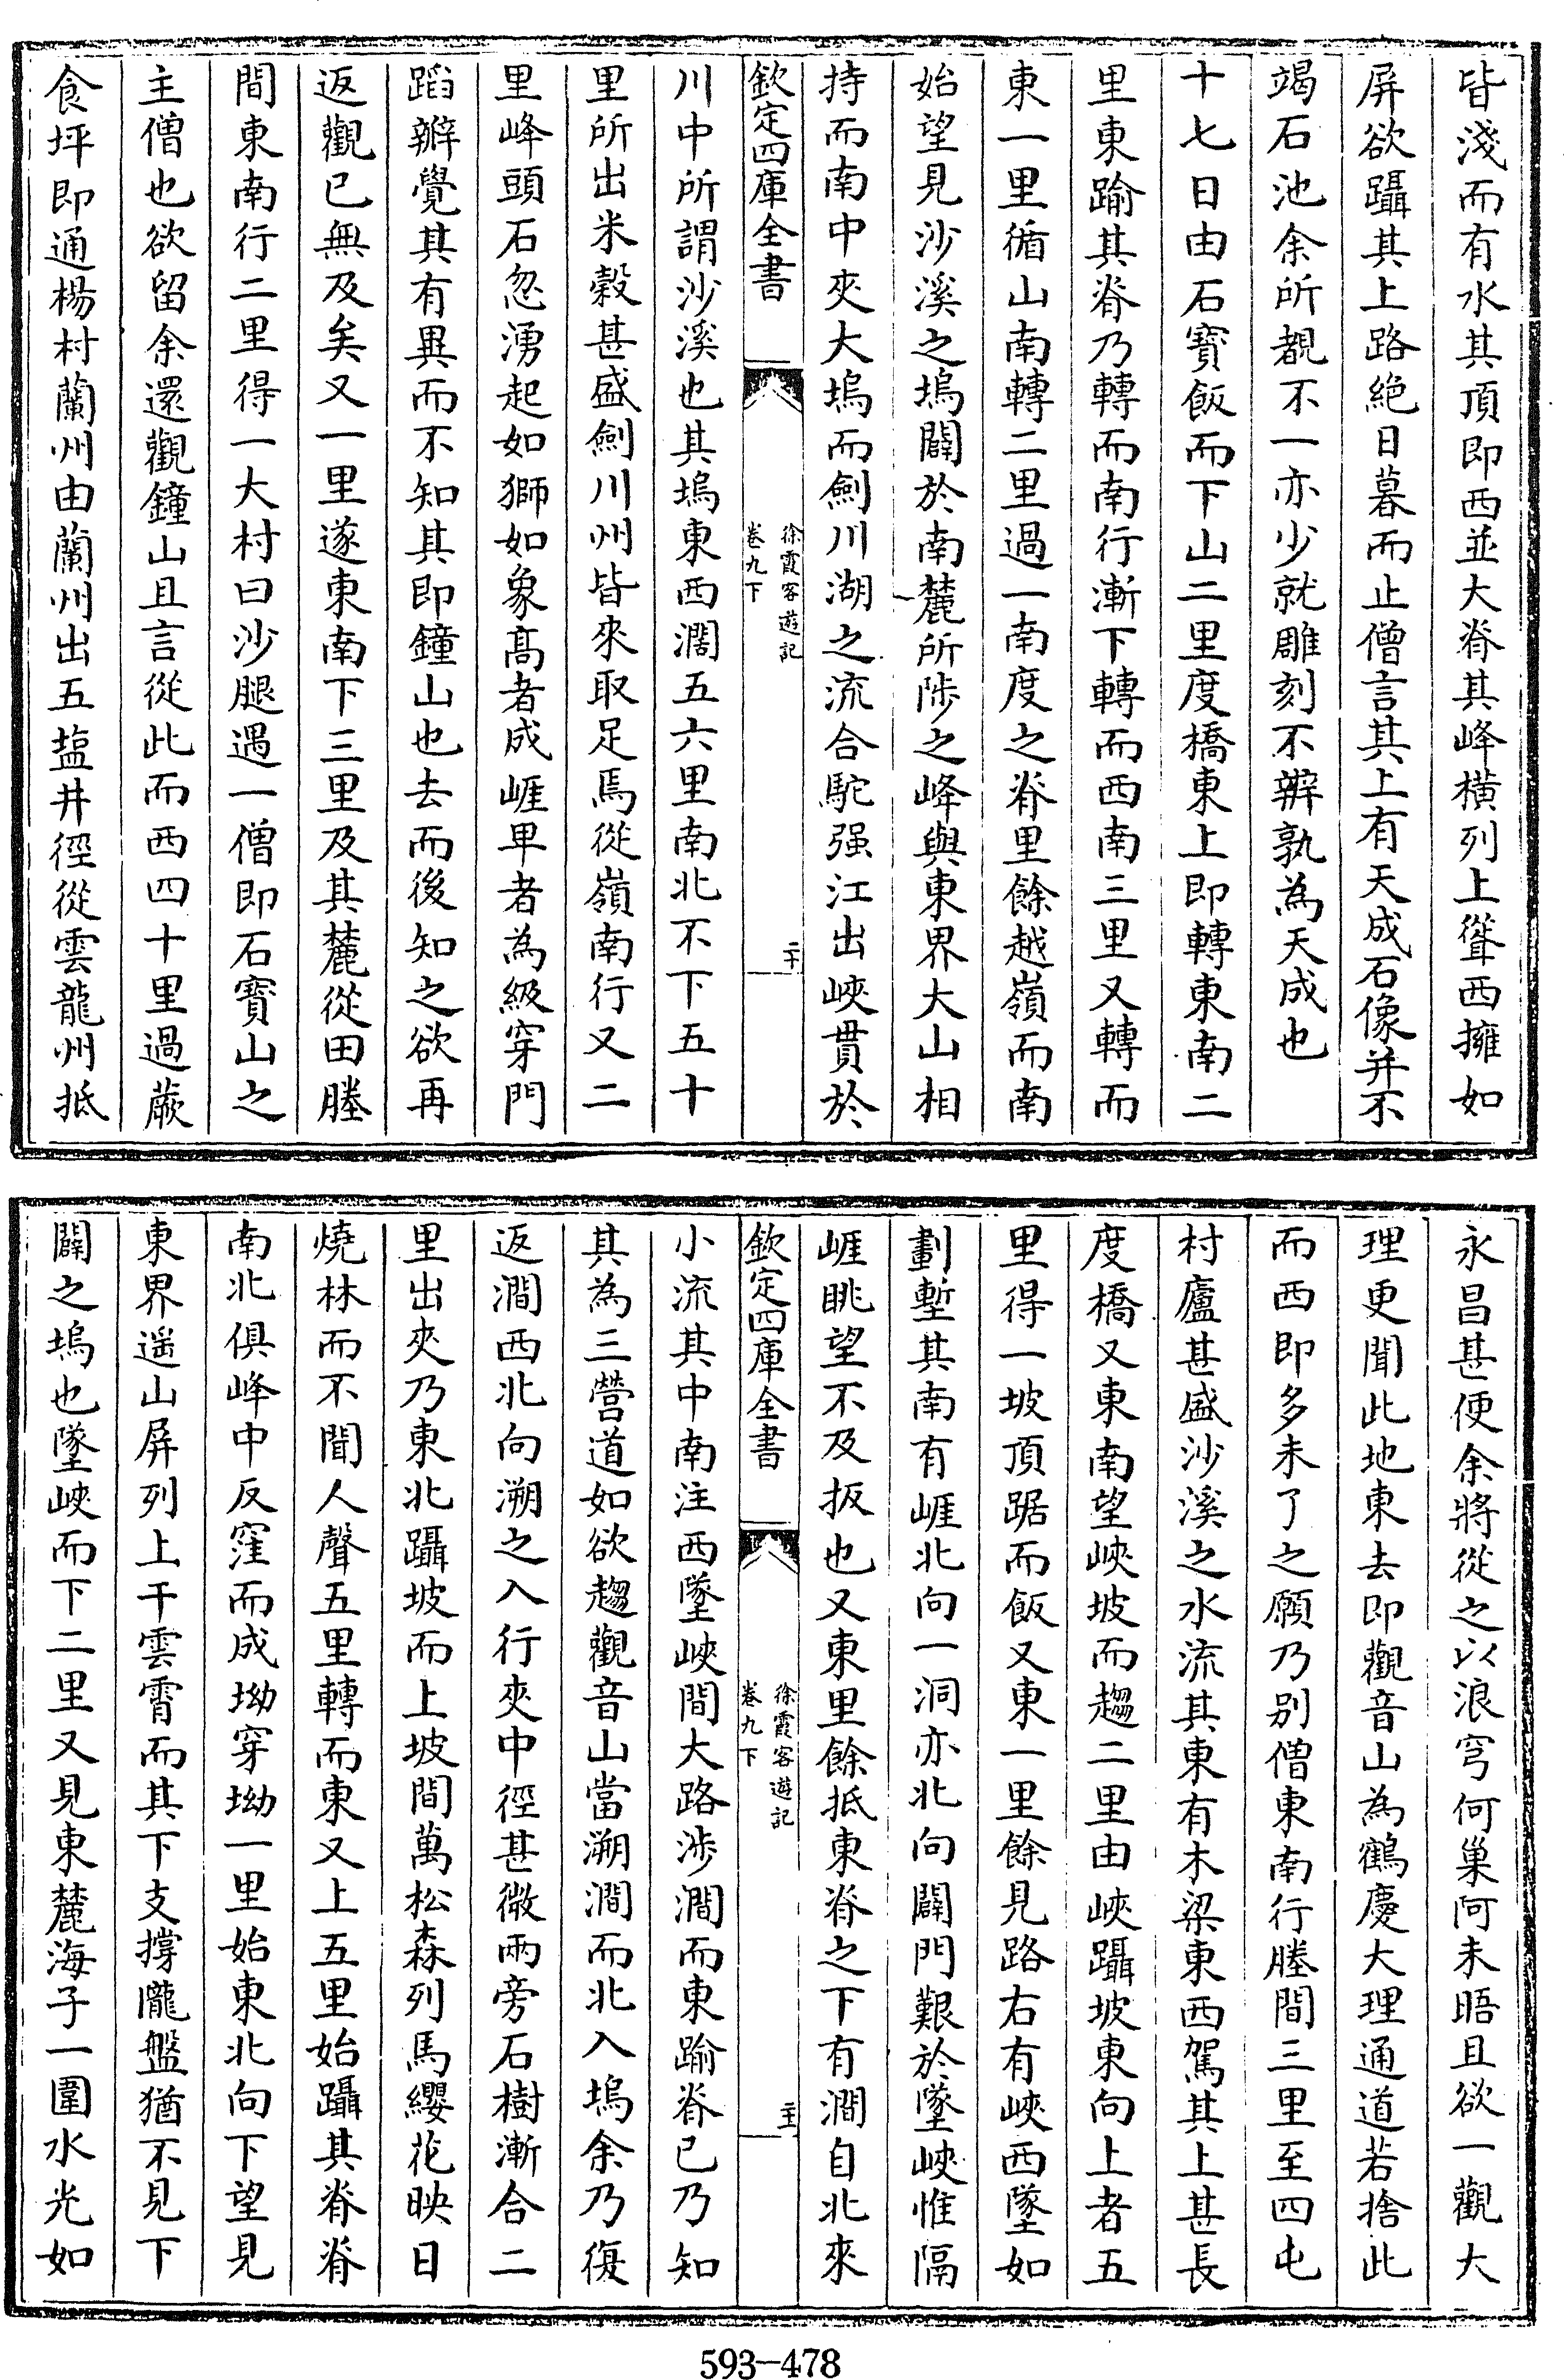 皆淺而有水其頂即西並大脊其峰橫列上聳西擁如
屏欲躡其上路絶日暮而止僧言其上有天成石像并不
竭石池余所覩不一亦少就雕刻不辨孰為天成也
十七日由石寳飯而下山二里度橋東上即轉東南二
里東踰其脊乃轉而南行漸下轉而西南三里又轉而
東一里循山南轉二里過一南度之脊里餘越嶺而南
始望見沙溪之塢闢於南麓所陟之峰與東界大山相
持而南中夾大塢而劍川湖之流合駝强江出峽貫於
欽定四庫全書
徐霞客遊記
卷九下
二十
川中所謂沙溪也其塢東西濶五六里南北不下五十
里所出米穀甚盛劍川州皆來取足焉從嶺南行又二
里峰頭石忽湧起如獅如象髙者成崕卑者為級穿門
蹈瓣覺其有異而不知其即鐘山也去而後知之欲再
返觀已無及矣又一里遂東南下三里及其麓從田塍
間東南行二里得一大村曰沙腿遇一僧即石寳山之
主僧也欲留余還觀鐘山且言從此而西四十里過蕨
食坪即通楊村蘭州由蘭州出五塩井徑從雲龍州抵
永昌甚便余將從之以浪穹何巢阿未晤且欲一觀大
理更聞此地東去即觀音山為鶴慶大理通道若捨此
而西即多未了之願乃别僧東南行塍間三里至四屯
村廬甚盛沙溪之水流其東有木梁東西駕其上甚長
度橋又東南望峽坡而趨二里由峽躡坡東向上者五
里得一坡頂踞而飯又東一里餘見路右有峽西墜如
劃塹其南有崕北向一洞亦北向闢門艱於墜峽惟隔
崕眺望不及扳也又東里餘抵東脊之下有澗自北來
欽定四庫全書
徐霞客遊記
卷九下
二十一
小流其中南注西墜峽間大路涉澗而東踰脊已乃知
其為三營道如欲趨觀音山當溯澗而北入塢余乃復
返澗西北向溯之入行夾中徑甚微兩旁石樹漸合二
里出夾乃東北躡坡而上坡間萬松森列馬纓花映日
燒林而不聞人聲五里轉而東又上五里始躡其脊脊
南北俱峰中反窪而成坳穿坳一里始東北向下望見
東界遥山屏列上干雲霄而其下支撐隴盤猶不見下
闢之塢也墜峽而下二里又見東麓海子一圍水光如
593-478